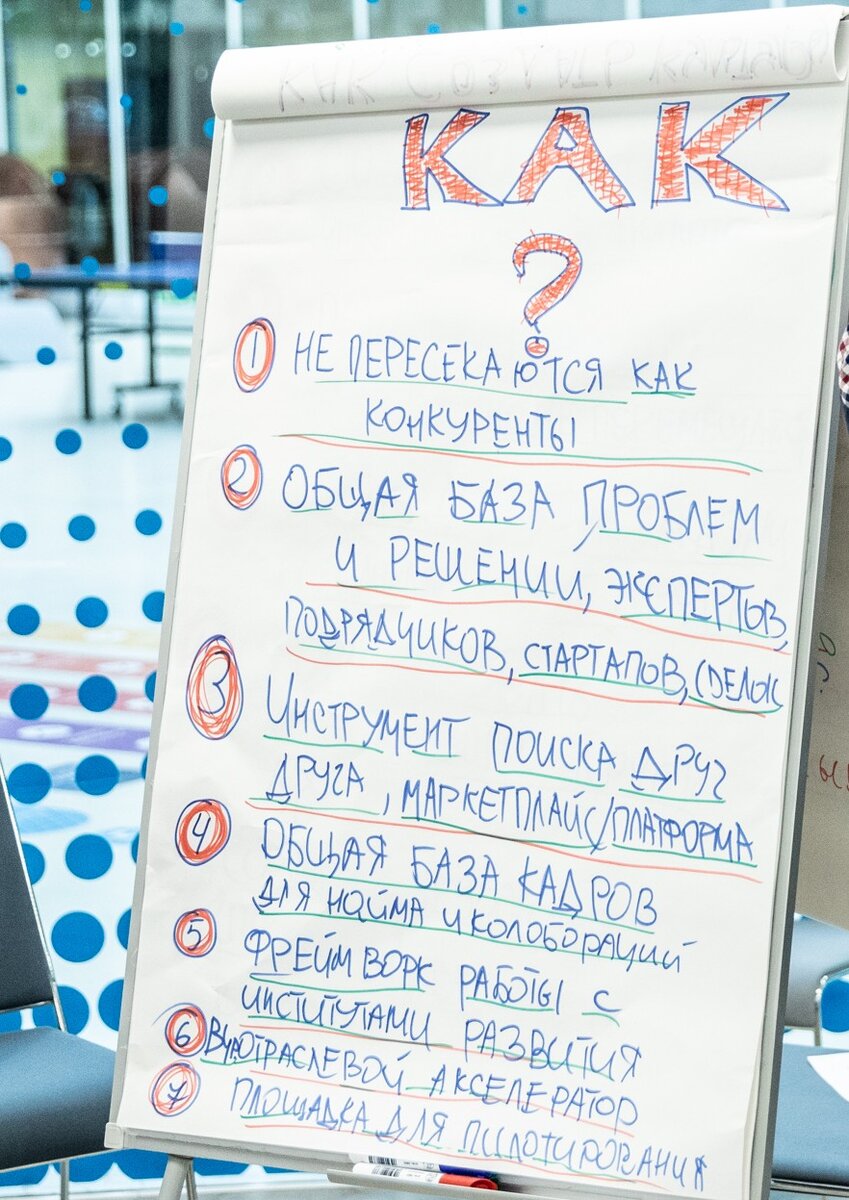 КАК
?
1 НЕ ПЕРЕСЕКАЮТСЯ КАК
КОНКУРЕНТЫ
2 ОБЩАЯ БАЗА ПРОБЛЕМ
И РЕШЕНИИ, ЭКСПЕРТОВ,
ПОДРЯДЧИКОВ, СТАРТАПОВ, СДЕЛОК
3 ИНСТРУМЕНТ ПОИСКА ДРУГ
ДРУГА, МАРКЕТПЛАЙС/ПЛАТФОРМА
4 ОБЩАЯ БАЗА КАДРОВ
ДЛЯ НАЙМА И КОЛОБОРАЦИЙ
5 ФРЕЙМВОРК РАБОТЫ С
ИНСТИТУТАМИ РАЗВИТИЯ
6 ОТРАСЛЕВОЙ АКСЕЛЕРАТОР
7 ПЛОЩАДКА ДЛЯ ПИЛОТИРОВАНИЯ